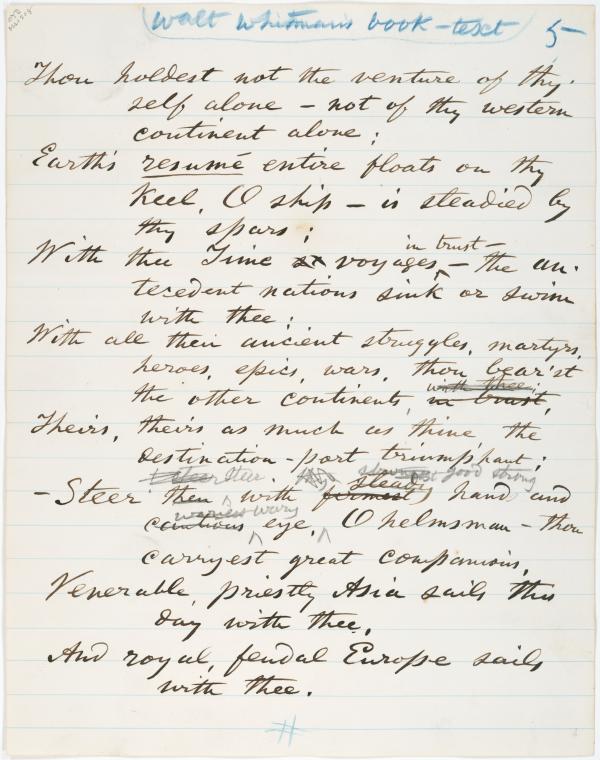 Walt Whitman's book-text 5
Thou holdest not the venture of thy-
self alone – not of thy western
continent alone;
Earth's resumé entire floats on thy
keel, O ship – is steadied by
thy spars;
in trust –
With thee Time voyages, – the an-
tecedent nations sink or swim
with thee;
With all their ancient struggles, martyrs,
heroes, epics, wars, thou bear'st
with thee;
the other continents, in trust,
Theirs, theirs as much as thine, the
destination-port triumphant;
Steer good strong
– Steer then with firmest hand and
wariest wary
cautious eye, O helmsman – thou
carryest great companions,
Venerable, priestly Asia sails this
day with thee,
And royal, feudal Europe sails
with thee.